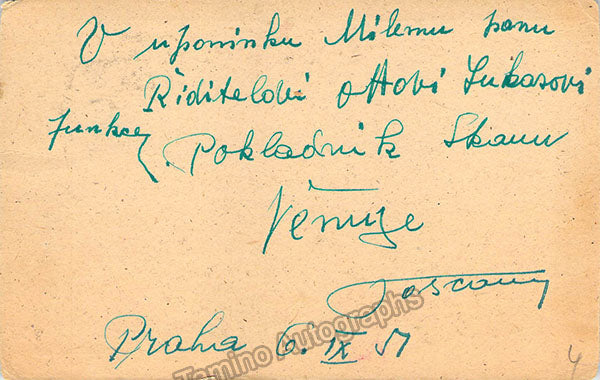 V upomínku Milemu panu
Řiditelovi Ottovi Lukasovi
funkce Pokladnik Skaun
Věnuje
Toscany
Praha 6. IX 51
Tamino Autographs
4